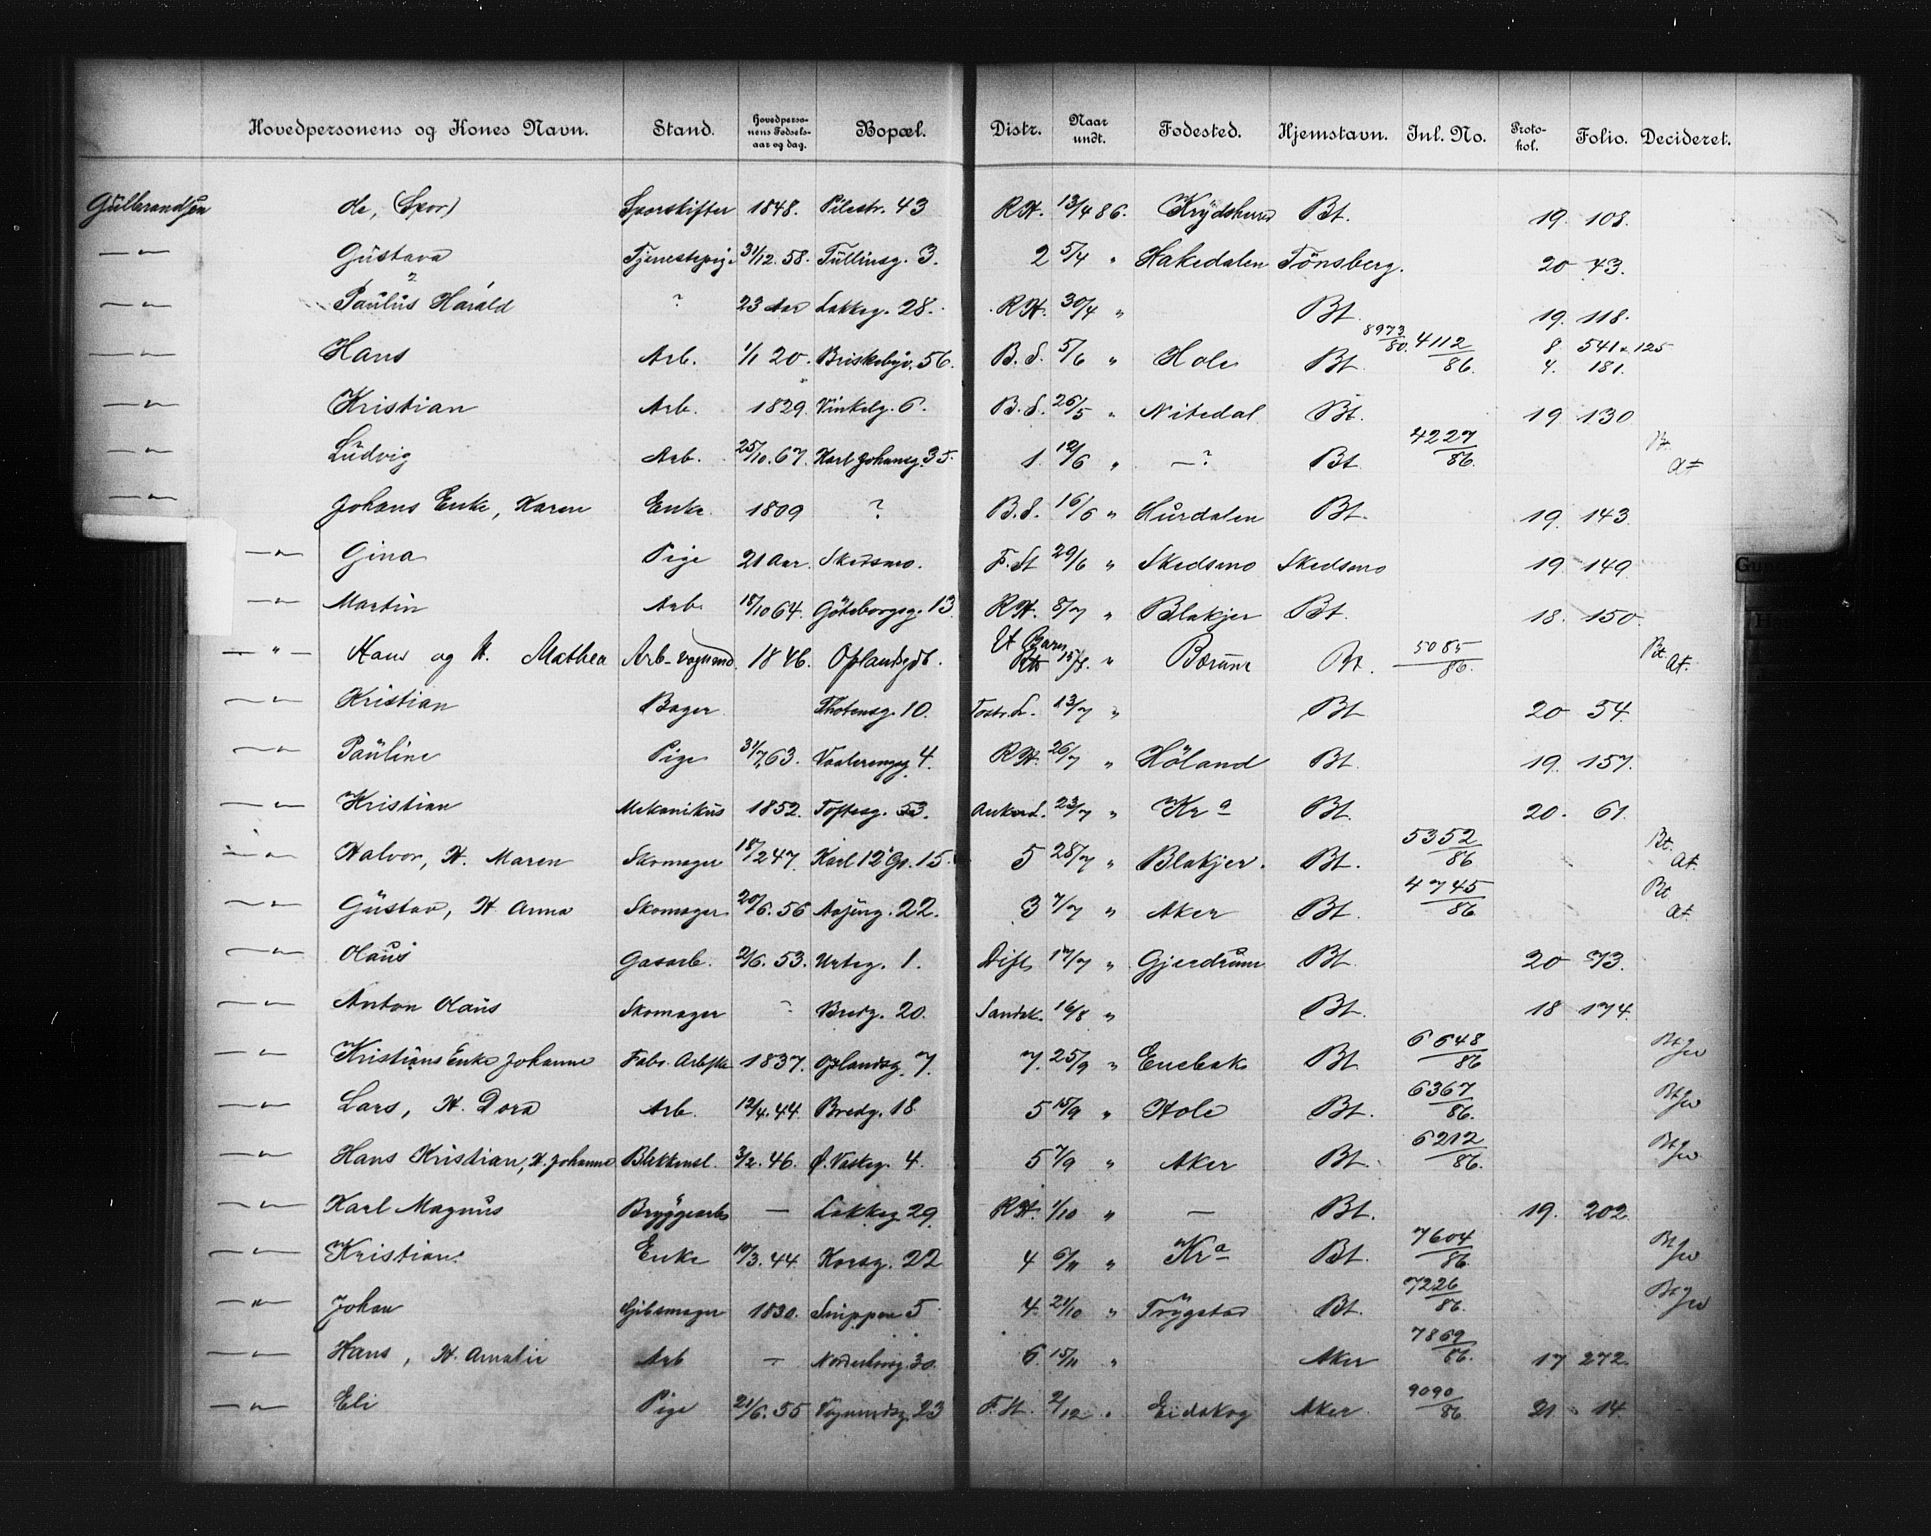 Hovedpersonens og Kones Navn. Stand. Hovedpersonens Fødselsaar og dag. Bopæl. Distr. Naar undt. Fødested. Hjemstavn. Inl. No. Protokol. Folio. Decideret.
Gulbrandsen de, (Spor) Sporskifter 1848. Pilestr. 43 R.H. 13/4 86. Krydsherred Bt. 19. 108.
—"— Gustava Tjenestepige 31/12. 58. Tullinsg. 3. 2 5/4 " Hakedalen Tönsberg. 20 43.
—"— Paulus Harald ? 23 Aar Lakkeg. 28. R.H. 30/4 " Bt. 19. 118.
—"— Hans Arb. 1/1 20. Briskebyv. 56. B.S. 5/6 " Hole Bt. 8973/80. 4112/86. 8 541 & 125 4. 181.
—"— Kristian Arb. 1829. Vinkelg. 6. B.S. 26/5 " Nitedal Bt. 19. 130
—"— Ludvig Arb. 25/10. 67. Karl Johansg. 35. 1. 12/6 " —? Bt. 4227/86. Bt. At
—"— Johans Enke, Karen Enke 1809 ? B.S. 16/6 " Hurdalen Bt. 19. 143.
—"— Gina Pige 21 Aar. Skedsmo. F.St 29/6 " Skedsmo Skedsmo 19 149.
—"— Martin Arb. 18/10 64. Göteborgsg. 13 R.H. 8/7 " Blakjer Bt. 18. 150.
—"— Hans og H. Mathea Arb. - vognmd. 1846. Oplandsg. " Bærum Bt. 5085/86. Bt. At.
—"— Kristian Bager Thotensg. 10. 13/7 " Bt. 20 54.
—"— Pauline Pige 31/7 63. Vaalerengg. 4. R.H. 26/7 " Höland Bt. 19. 157.
—"— Kristian Mekanikus 1852. Toftesg. 53. Ankerl. 23/7 " Kra Bt. 20. 61.
—"— Halvor, H. Maren Skomager 18/2 47. Karl 12' G. 15. 5 28/7 " Blakjer. Bt. 5352/86 Bt. At.
—"— Gustav, H. Anna Skomager 20/6. 56 22. 3 7/7 " Aker Bt. 4745/86 Bt At.
—"— Olaus Gasarb. 2/6. 53. Urteg. 1. 17/7 " Gjerdrum Bt. 20 73.
—"— Anton Olaus Skomager ? Bredg. 20. Sandak. 16/8 " Bt. 18 174.
—"— Kristians Enke Johanne Fabr. Arbske 1837. Oplandsg. 7. 7. 25/9 " Enebak Bt. 6648/86
—"— Lars, H. Dora Arb. 12/4. 44. Bredg. 18 5 15/9 " Hole Bt. 6367/86.
—"— Hans Kristian, H. Johanne Blikkensl. 3/2. 46. Ø. Vaskeg. 4. 5 7/9 " Aker Bt. 6212/86.
—"— Karl Magnus Bryggearb — Lakkeg 29. R.H. 1/10 " — Bt. 19. 202
—"— Kristian Enke 10/3. 44. Korsg. 22 4 6/11 " Kra Bt. 7604/86
—"— Johan Gibsmager 1830. Snippen 5 4. 21/10 " Trygstad Bt. 7226/86.
—"— Hans, H. Amalie Arb — 30. 6. 15/11 " Aker 7869/86. 17 272.
—"— Eli Pige 21/6. 55 23 F.H. 2/12 " Eidskog Aker 9090/86 21. 14.